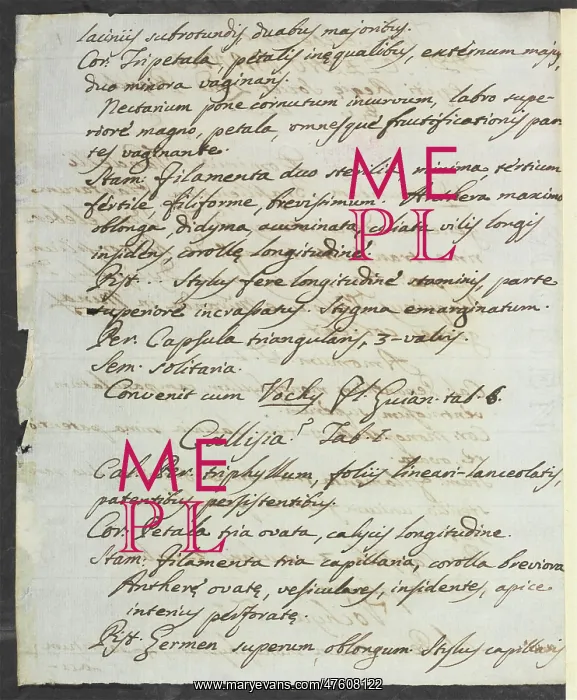 laciniis subrotundis, duabus majoribus.
Cor. Tripetala, petalis inęqualibus, externum majus,
duo minora vaginans.
Nectarium pone cornutum incurvum, labro supe-
riorė magno, petala, omnesque fructificationis par
tes vaginante.
Stam: filamenta duo sterilia, minima, tertium
fertile, filiforme, brevissimum. Anthera maxima
oblonga, didyma, acuminata, ciliata vilis longis
insidens, corollę longitudinė.
Pist. Stylus fere longitudinė staminis, parte
superiorė incrassatus. Stygma emarginatum.
Per. Capsula triangularis, 3-valvis.
Sem. solitaria.
Convenit cum Vochy fl. Guian. tab. 6.
Callisia? Tab. I.
Cal. Per. triphyllum, foliis lineari-lanceolatis,
patentibus persistentibus.
Cor. Petala tria ovata, calycis longitudine.
Stam: filamenta tria capillaria, corolla breviora
Antherę ovatę, vesiculares, insidentes, apice
interius perforatę
Pist. Germen superum, oblongum. Stylus capillaris
ME
PL
ME
PL
www.maryevans.com/47608122